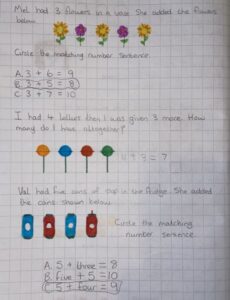 Miel had 3 flowers in a vase. She added the flowers
below.
Circle the matching number sentence.
A. 3 + 6 = 9
B. 3 + 5 = 8
C. 3 + 7 = 10
I had 4 lollies then I was given 3 more. How
many do I have altogether?
4 + 3 = 7
Val had five cans of pop in the fridge. She added
the cans shown below.
Circle the matching
number sentence.
A. 5 + three = 8
B. five + 5 = 10
C. 5 + four = 9